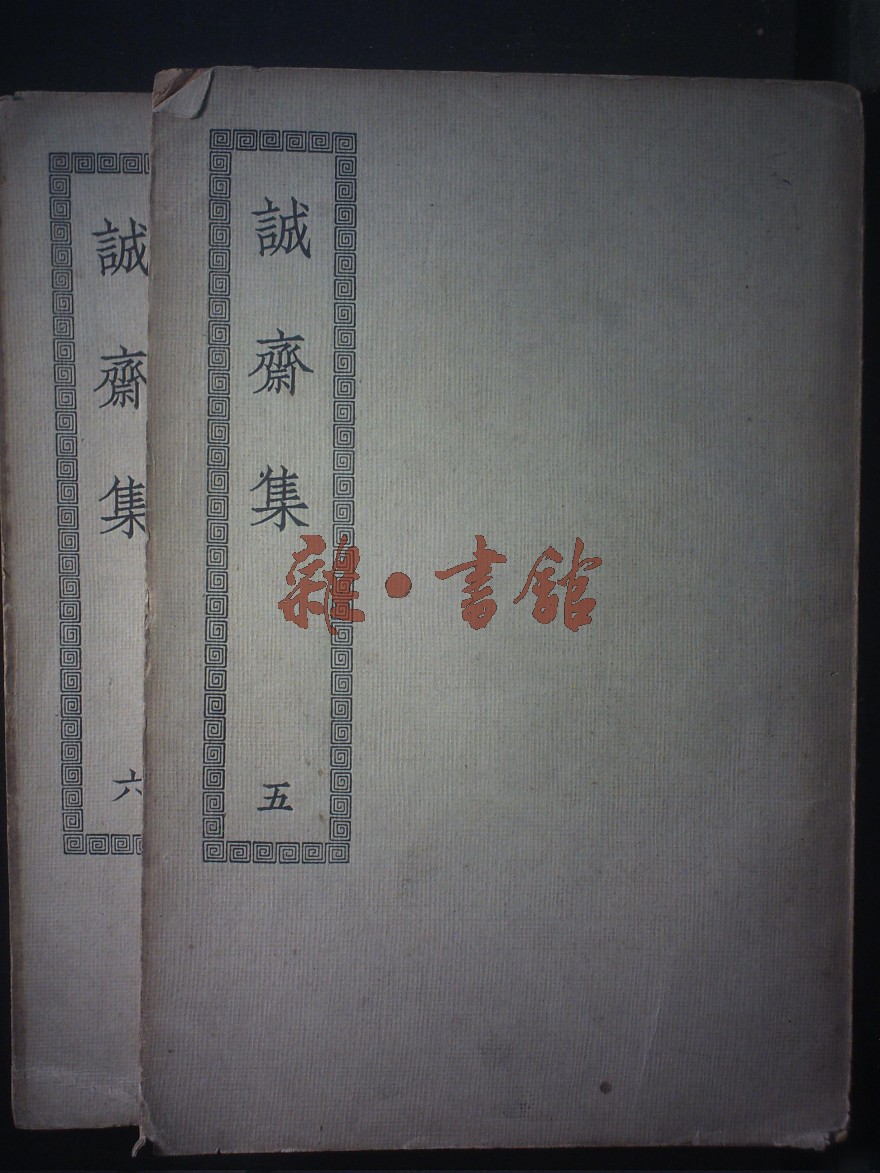 誠齋集
五
誠齋集
六
雜·書館